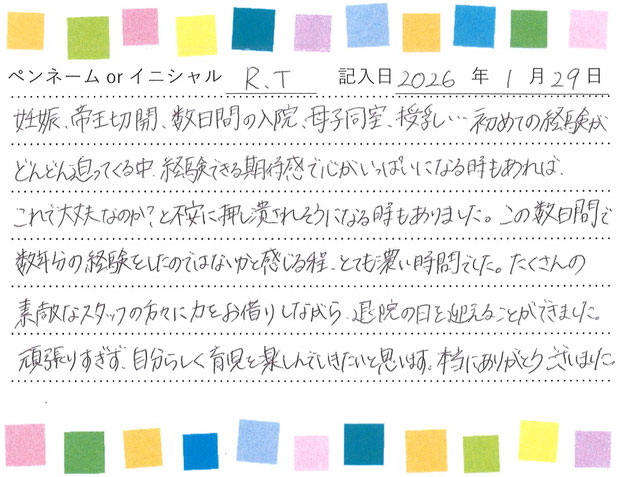 ペンネーム or イニシャル R.T 記入日 2026 年 1 月 29 日
妊娠、帝王切開、数日間の入院、母子同室、授乳… 初めての経験が
どんどん迫ってくる中、経験できる期待感で心がいっぱいになる時もあれば、
これで大丈夫なのか?と不安に押し潰されそうになる時もありました。この数日間で
数年分の経験をしたのではないかと感じる程、とても濃い時間でした。たくさんの
素敵なスタッフの方々に力をお借りしながら、退院の日を迎えることができました。
頑張りすぎず、自分らしく育児を楽しんでいきたいと思います。本当にありがとうございました。